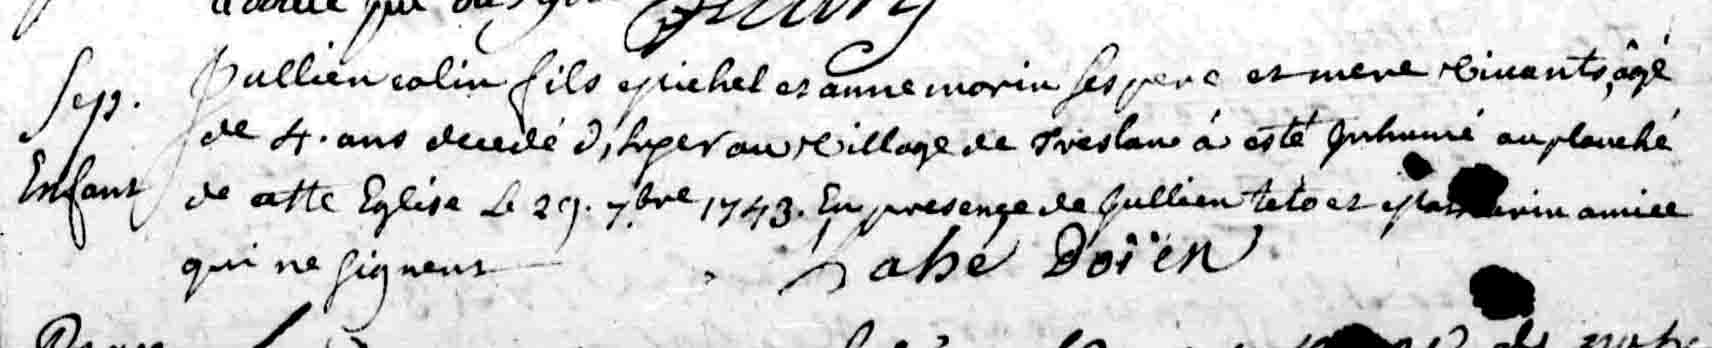 Sep. Jullien colin fils Michel et anne morin ses pere et mere vivants, âgé
de 4. ans decedé d'hyer au village de Treslan á esté Inhumé au planché
Enfant de cette Eglise Le 29. 7bre 1743. En presence de Jullien teto et Mathurin amice
qui ne signent Labbé Doïen